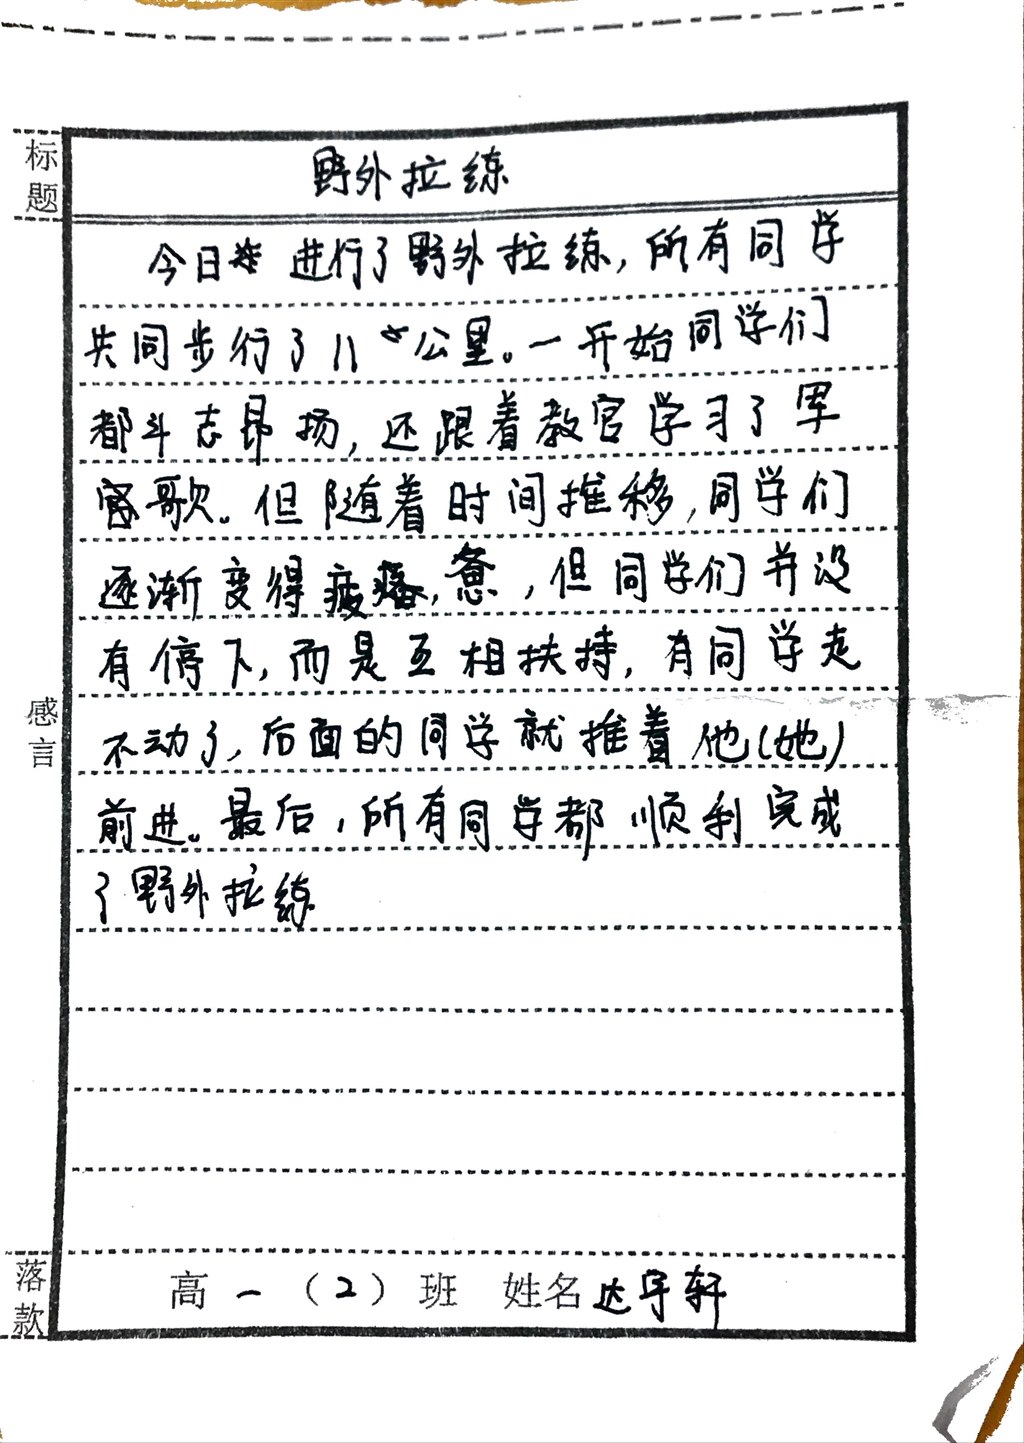 标题
野外拉练
今日 进行了野外拉练,所有同学
共同步行了11 公里。一开始同学们
都斗志昂扬,还跟着教官学习了军
歌。但随着时间推移,同学们
逐渐变得疲 惫,但同学们并没
有停下,而是互相扶持,有同学走
不动了,后面的同学就推着他(她)
前进。最后,所有同学都顺利完成
了野外拉练
感言
落款
高一(2)班 姓名达宇轩